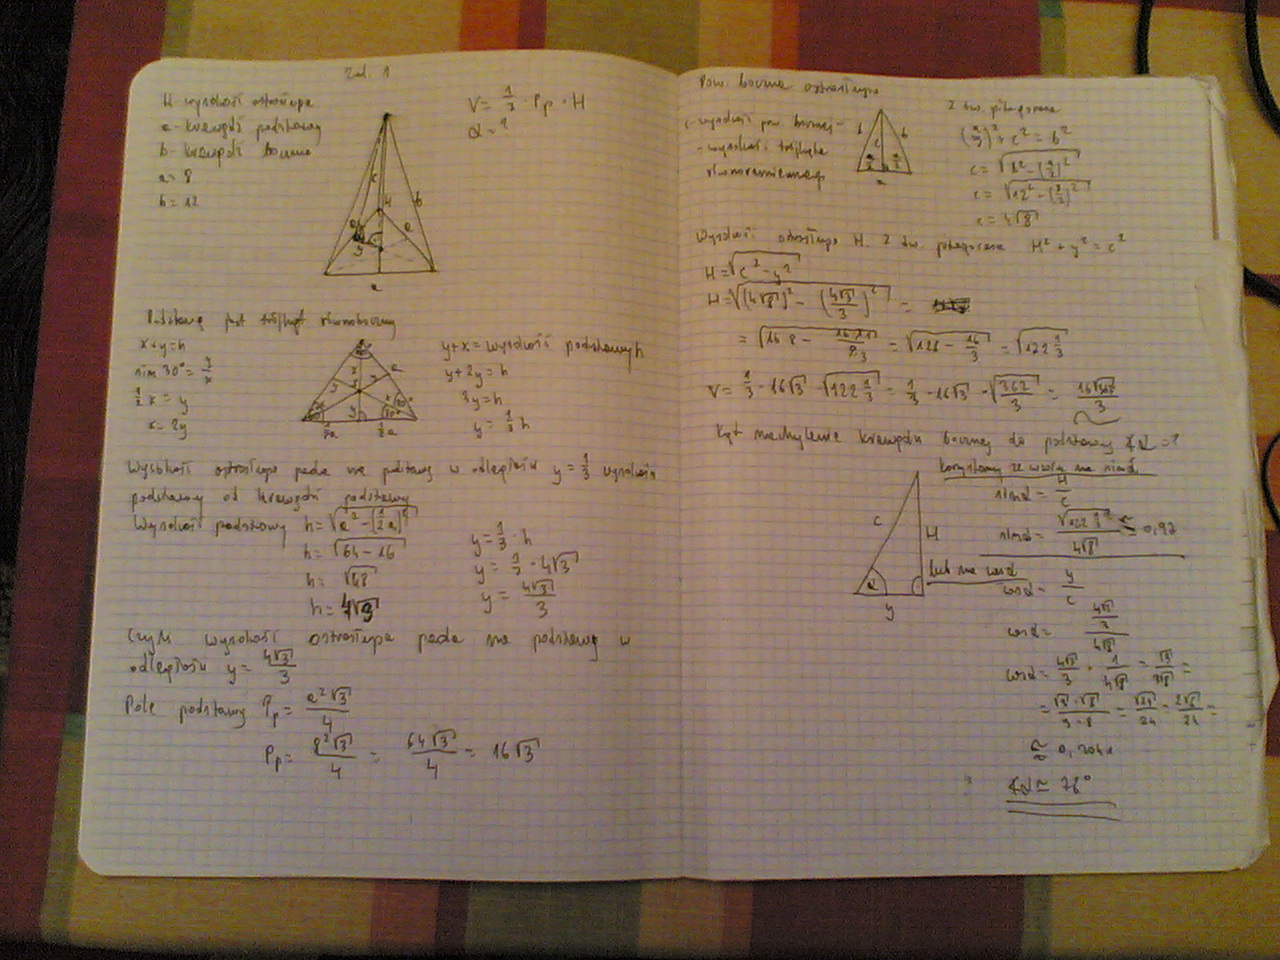 Zad. 1
H - wysokość ostrosłupa
a - krawędź podstawy
b - krawędź boczna
a = 8
b = 12
V = 1/3 · Pp · H
α = ?
c
H
b
a
y
a
Podstawą jest trójkąt równoboczny
x + y = h
sin 30° = y/x
1/2 x = y
x = 2y
x
a
y
1/2 a
1/2 a
y + x = wysokość podstawy h
y + 2y = h
3y = h
y = 1/3 h
Wysokość ostrosłupa pada na podstawę w odległości y = 1/3 wysokości
podstawy od krawędzi podstawy
Wysokość podstawy h = √(a² - (1/2 a)²)
h = √(64 - 16)
h = √48
h = 4√3
y = 1/3 · h
y = 1/3 · 4√3
y = 4√3/3
Czyli wysokość ostrosłupa pada na podstawę w
odległości y = 4√3/3
Pole podstawy Pp = a²√3/4
Pp = 8²√3/4 = 64√3/4 = 16√3
Pow. boczna ostrosłupa
c - wysokość pow. bocznej -
- wysokość trójkąta
równoramiennego
b
c
b
a/2
a/2
a
Z tw. pitagorasa
(a/2)² + c² = b²
c = √(b² - (a/2)²)
c = √(12² - (8/2)²)
c = 4√8
Wysokość ostrosłupa H. Z tw. pitagorasa H² + y² = c²
H = √(c² - y²)
H = √((4√8)² - (4√3/3)²) =
= √(128 - 16/3) = √(122 2/3)
Kąt nachylenia krawędzi bocznej do podstawy ∢α = ?
c
H
α
y
korzystamy ze wzoru na sinα
sinα = H/c
lub na cosα
cosα = y/c
cosα = (4√3/3)/(4√8)
cosα = 4√3/3 · 1/4√8 = √3/3√8 =
= √3·√8/3·8 = √24/24 = 2√6/24 =
≈ 0,2041
∢α ≈ 78°